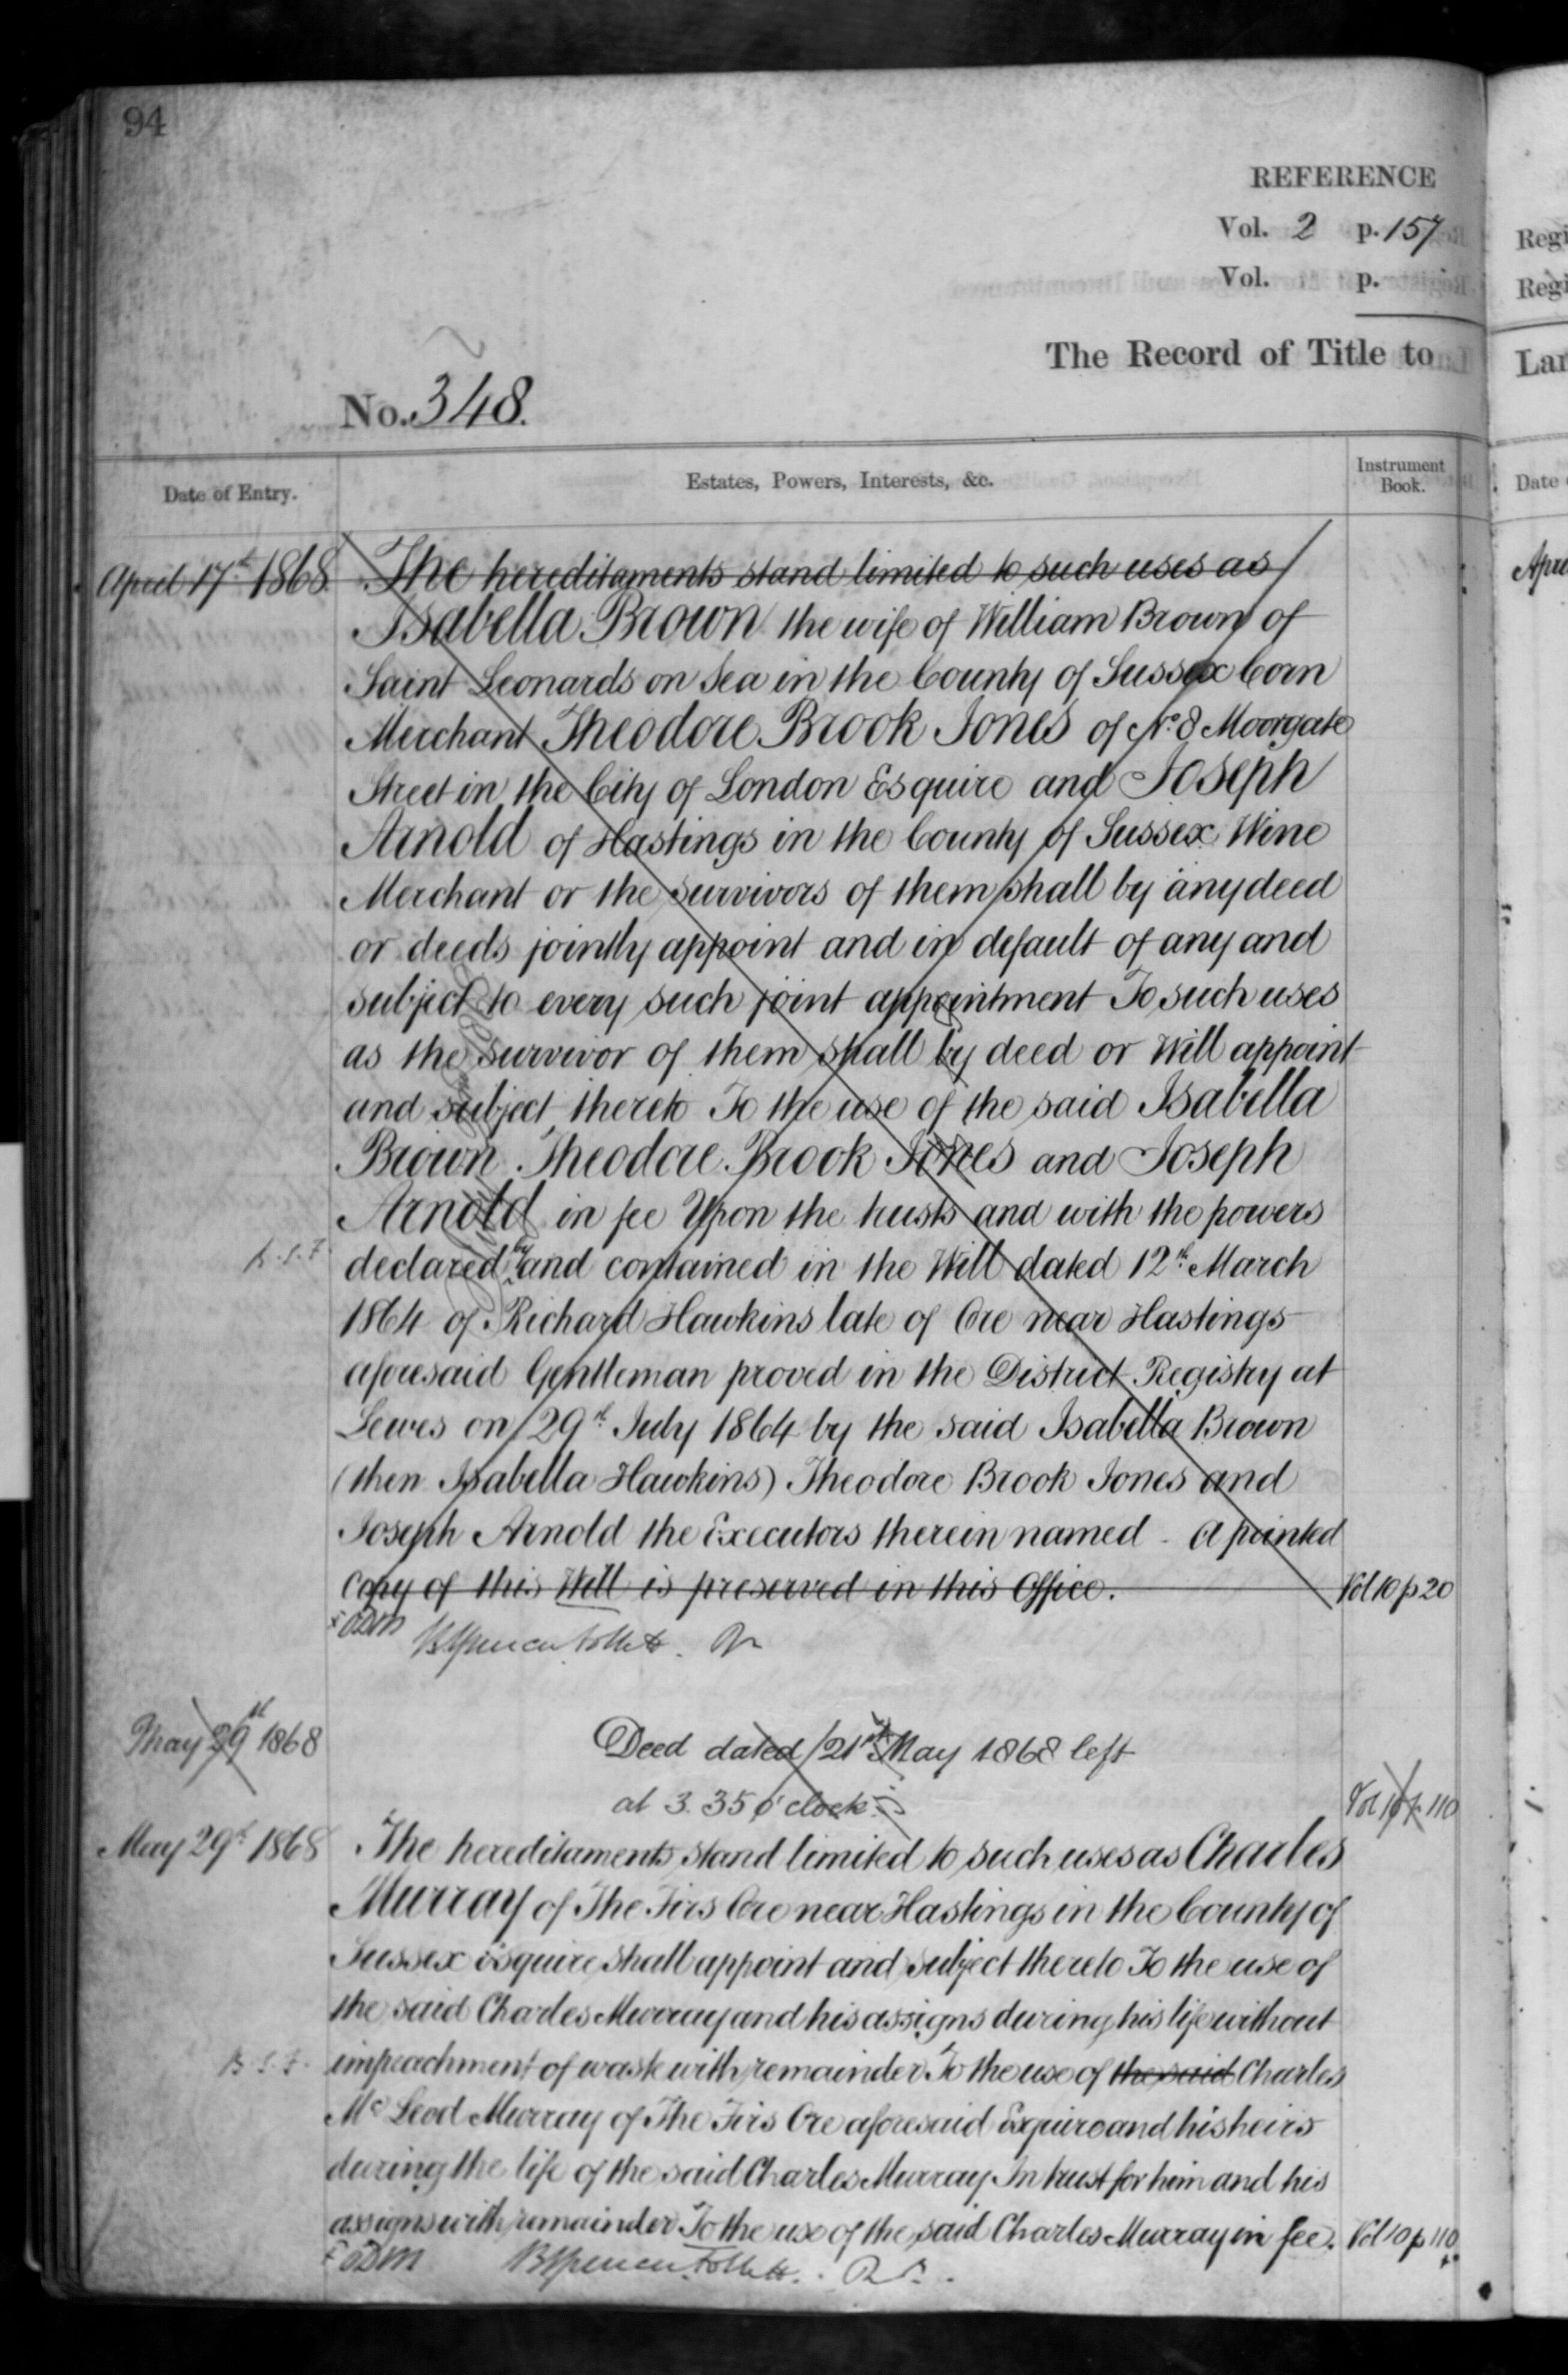 94
REFERENCE
Vol. 2 p. 157
Vol. p.
The Record of Title to
No. 348.
Date of Entry.
Estates, Powers, Interests, &c.
Instrument Book.
April 17th 1868
The hereditaments stand limited to such uses as
Isabella Brown the wife of William Brown of
Saint Leonards on Sea in the County of Sussex Corn
Merchant Theodore Brook Jones of No. 8 Moorgate
Street in the City of London Esquire and Joseph
Arnold of Hastings in the County of Sussex Wine
Merchant or the survivors of them shall by any deed
or deeds jointly appoint and in default of any and
subject to every such joint appointment To such uses
as the survivor of them shall by deed or Will appoint
and subject thereto To the use of the said Isabella
Brown Theodore Brook Jones and Joseph
Arnold in fee Upon the trusts and with the powers
declared by and contained in the Will dated 12th March
1864 of Richard Hawkins late of Ore near Hastings
aforesaid Gentleman proved in the District Registry at
Lewes on 29th July 1864 by the said Isabella Brown
(then Isabella Hawkins) Theodore Brook Jones and
Joseph Arnold the Executors therein named - A printed
copy of this Will is preserved in this Office.
Vol 10 p 20
May 29th 1868
Deed dated 21st May 1868 left
at 3.35 o'clock
Vol 10 p. 110
May 29th 1868
The hereditaments stand limited to such uses as Charles
Murray of The Firs Ore near Hastings in the County of
Sussex Esquire shall appoint and subject thereto To the use of
the said Charles Murray and his assigns during his life without
B.S.F.
impeachment of waste with remainder To the use of the said Charles
Mc Leod Murray of The Firs Ore aforesaid Esquire and his heirs
during the life of the said Charles Murray In trust for him and his
assigns with remainder To the use of the said Charles Murray in fee.
Vol 10 p 110
Regi
Regi
Lar
Date
Apri